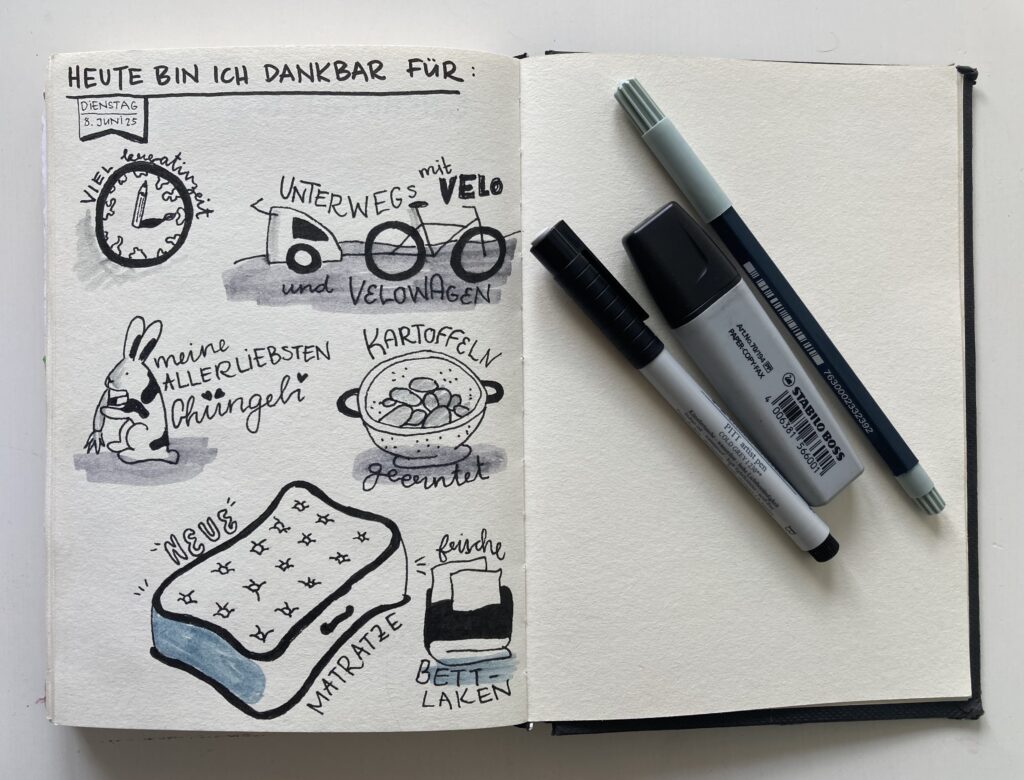 HEUTE BIN ICH DANKBAR FÜR:
DIENSTAG
8. JUNI 25
VIEL kreativzeit
UNTERWEGS mit VELO
und VELOWAGEN
meine
ALLERLIEBSTEN
Chüngeli
KARTOFFELN
geerntet
NEUE
MATRATZE
frische
BETT-
LAKEN
PITT artist pen
COLD GREY I 230**
Art.No. 70/194
PAPER-COPY-FAX
STABILO BOSS
4 006381 566001
7630002332392